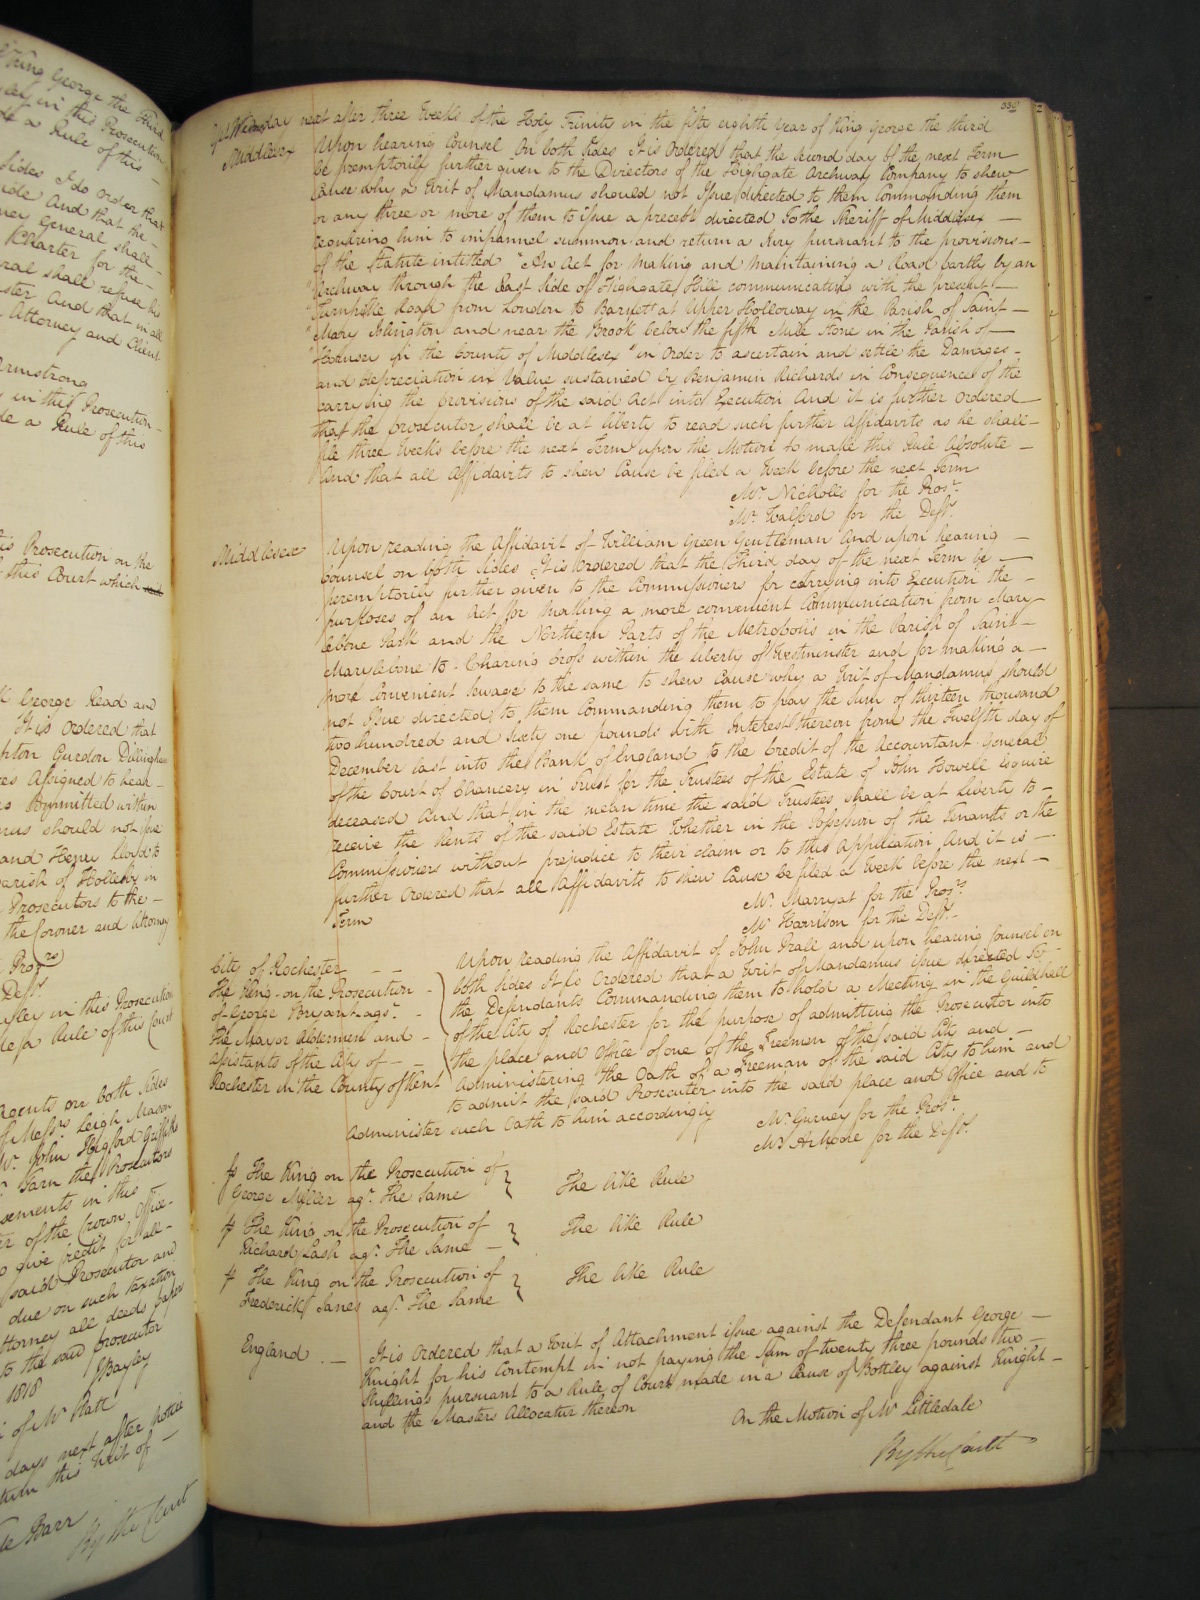 King George the Third
in this Prosecution
a Rule of this
Sides I do order that
side And that the
ney General shall
Charter for the
ral shall refuse his
ster And that in all
Attorney and Client
Armstrong
in this Prosecution
de a Rule of this
is Prosecution on the
this Court which
George Read and
It is Ordered that
pton Gurdon Dillingham
res assigned to hear
committed within
mus should not issue
and Henry Lloyd to
arish of Hollesby in
Prosecutors to the
the Coroner and Attorney
Pros.rs
Def.t
in this Prosecution
Rule of this Court
Agents on both sides
of Mess.rs Leigh Mason
Mr. John Hosford Griffiths
Tarn the Prosecutors
sements in this
of the Crown Office
to give credit for all
said Prosecutor and
due on such taxation
ttorney all deeds papers
to the said Prosecutor
1818 J Bayley
of Mr Platt
days next after notice
turn this Writ of
Barr
By the Court
339
Wednesday next after three Weeks of the Holy Trinity in the fifty eighth Year of King George the third
Middlesex Upon hearing Counsel on both sides It is Ordered that the second day of the next Term
be peremptorily further given to the Directors of the Highgate Archway Company to shew
cause why a Writ of Mandamus should not Issue directed to them Commanding them
or any three or more of them to issue a precept directed to the Sheriff of Middlesex —
requiring him to impannel summon and return a Jury pursuant to the provisions —
of the Statute intitled "An Act for Making and Maintaining a Road partly by an
"Archway through the East Side of Highgate Hill communicating with the present —
"Turnpike Road from London to Barnet at Upper Holloway in the Parish of Saint —
"Mary Islington and near the Brook below the fifth Mile Stone in the Parish of —
"Hornsey in the County of Middlesex" in Order to ascertain and settle the Damages —
and depreciation in Value sustained by Benjamin Richards in Consequence of the
carrying the provisions of the said Act into Execution And it is further Ordered —
that the Prosecutor shall be at liberty to read such further Affidavits as he shall —
file three Weeks before the next Term upon the Motion to make this Rule Absolute —
And that all Affidavits to shew Cause be filed a Week before the next Term
Mr. Nicholls for the Pros.r
Mr. Walford for the Def.ts
Middlesex Upon reading the Affidavit of William Green Gentleman And upon hearing —
Counsel on both sides It is Ordered that the Third day of the next Term be —
peremptorily further given to the Commissioners for carrying into Execution the —
purposes of an Act for Making a more convenient Communication from Mary
lebone Park and the Northern Parts of the Metropolis in the Parish of Saint —
Marylebone to Charing Cross within the liberty of Westminster and for making a —
more Convenient Sewage to the same to shew Cause why a Writ of Mandamus should
not Issue directed to them Commanding them to pay the Sum of thirteen thousand
two hundred and sixty one pounds with Interest thereon from the Twelfth day of
December last into the Bank of England to the Credit of the Accountant General
of the Court of Chancery in Trust for the Trustees of the Estate of John Howell Esquire
deceased And that in the mean time the said Trustees shall be at Liberty to —
receive the Rents of the said Estate Whether in the Possession of the Tenants or the
Commissioners without prejudice to their claim or to this Application And it is —
further Ordered that all Affidavits to shew Cause be filed a Week before the next —
Term
Mr. Marryat for the Pros.rs
Mr. Harrison for the Def.ts
City of Rochester — —
The King on the Prosecution —
of George Bryant ags.t —
The Mayor Aldermen and —
Assistants of the City of — —
Rochester in the County of Kent
Upon reading the Affidavit of John Prall and upon hearing Counsel on
both sides It is Ordered that a Writ of Mandamus issue directed to
the Defendants Commanding them to hold a Meeting in the Guildhall
of the City of Rochester for the purpose of admitting the Prosecutor into
the place and Office of one of the Freemen of the said City and —
Administering the Oath of a Freeman of the said City to him and
to admit the said Prosecutor into the said place and Office and to
Administer such Oath to him accordingly
Mr. Gurney for the Pros.r
Mr. Adolphus for the Def.ts
The King on the Prosecution of
George Miller ags.t The Same
The like Rule
The King on the Prosecution of
Richard Lash ags.t The Same —
The like Rule
The King on the Prosecution of
Frederick Janes ags.t The Same
The like Rule
England — It is Ordered that a Writ of Attachment issue against the Defendant George —
Knight for his Contempt in not paying the Sum of twenty three pounds two —
Shillings pursuant to a Rule of Court made in a Cause of Bottley against Knight —
and the Masters Allocatur thereon
On the Motion of Mr Littledale
By the Court